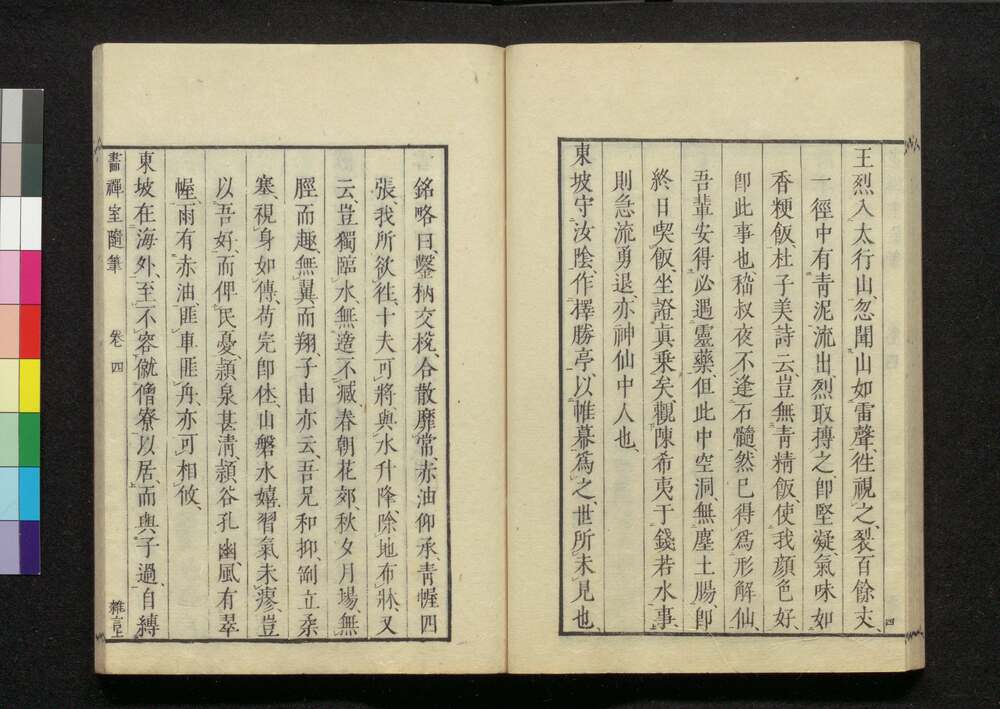 王烈入太行山、忽聞山如雷聲、往視之、裂百餘丈、
一徑中有靑泥流出烈取摶之卽堅凝氣味如
香粳飯、杜子美詩云、豈無靑精飯、使我顏色好、
卽此事也、嵇叔夜不逢石髓、然已得爲形解仙、
吾輩安得必遇靈藥、但此中空洞、無塵土腸、卽
終日喫飯、坐證眞乘矣、觀陳希夷于錢若水事、
則急流勇退、亦神仙中人也、
東坡守汝陰、作擇勝亭、以帷幕爲之、世所未見也、
四
銘略曰、鑿枘交設、合散靡常、赤油仰承、靑幄四
張、我所欲往、十夫可將、與水升降、除地布牀、又
云、豈獨臨水、無適不臧、春朝花郊、秋夕月場、無
脛而趣、無翼而翔、子由亦云、吾兄和抑、剛立柔
塞、視身如傳、苟完卽休、山磐水嬉、習氣未瘳、豈
以吾好、而俾民憂、潁泉甚淸、潁谷孔幽、風有翠
幄、雨有赤油、匪車匪舟、亦可相攸、
東坡在海外、至不容僦僧寮以居、而與子過、自縛
畵禪室隨筆 卷四 雜言上